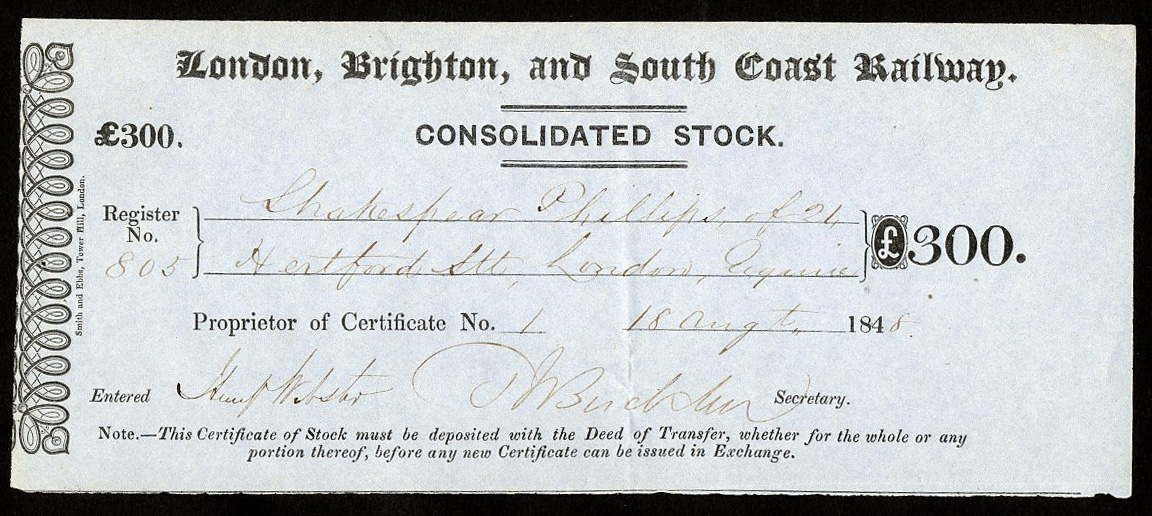 London, Brighton, and South Coast Railway.
£300.
CONSOLIDATED STOCK.
Register No. 805
Shakespear Phillips, of 21
Hertford Stt, London, Esquire
£300.
Proprietor of Certificate No. 1 18 Augt. 1848
Entered Secretary.
Note.—This Certificate of Stock must be deposited with the Deed of Transfer, whether for the whole or any
portion thereof, before any new Certificate can be issued in Exchange.
Smith and Ebbs, Tower Hill, London.